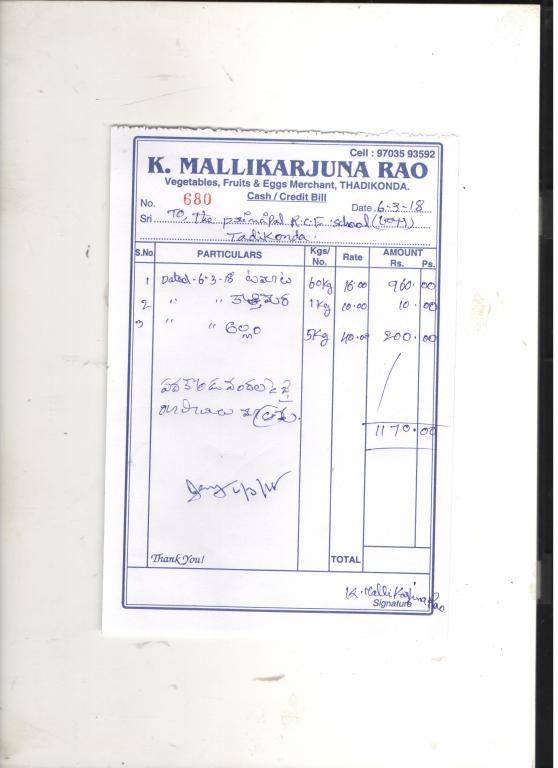 Cell : 97035 93592
K. MALLIKARJUNA RAO
Vegetables, Fruits & Eggs Merchant, THADIKONDA.
Cash / Credit Bill
No. 680 Date 6-3-18
Sri To, The principal R.C.E. school
Tadikonda.
S.No. PARTICULARS Kgs/No. Rate AMOUNT Rs. Ps.
1 Dated-6-3-18 టమాట 60kg 16.00 960.00
2 " " కొత్తిమీర 1kg 10.00 10.00
3 " " అల్లం 5kg 40.00 200.00
1170.00
Thank You! TOTAL
K. Mallikarjuna Rao
Signature